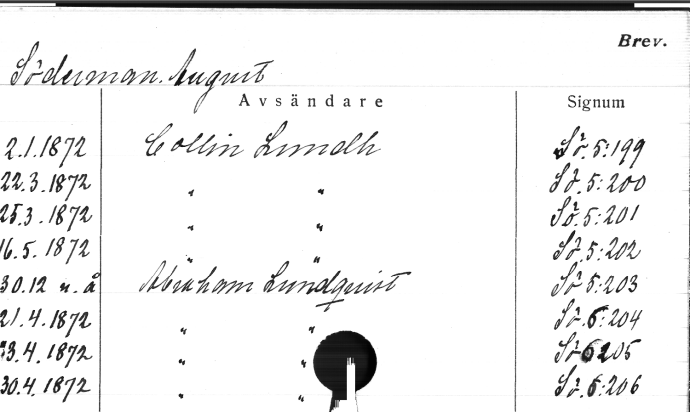 Brev.
Söderman. August
Avsändare Signum
2.1.1872 Collin Lundh Sö. 5:199
22.3.1872 " " Sö. 5:200
25.3.1872 " " Sö. 5:201
16.5.1872 " " Sö. 5:202
30.12 u.å Abraham Lundquist Sö 5:203
21.4.1872 " " Sö. 5:204
4.1872 " " Sö 5205
30.4.1872 " " Sö. 5:206